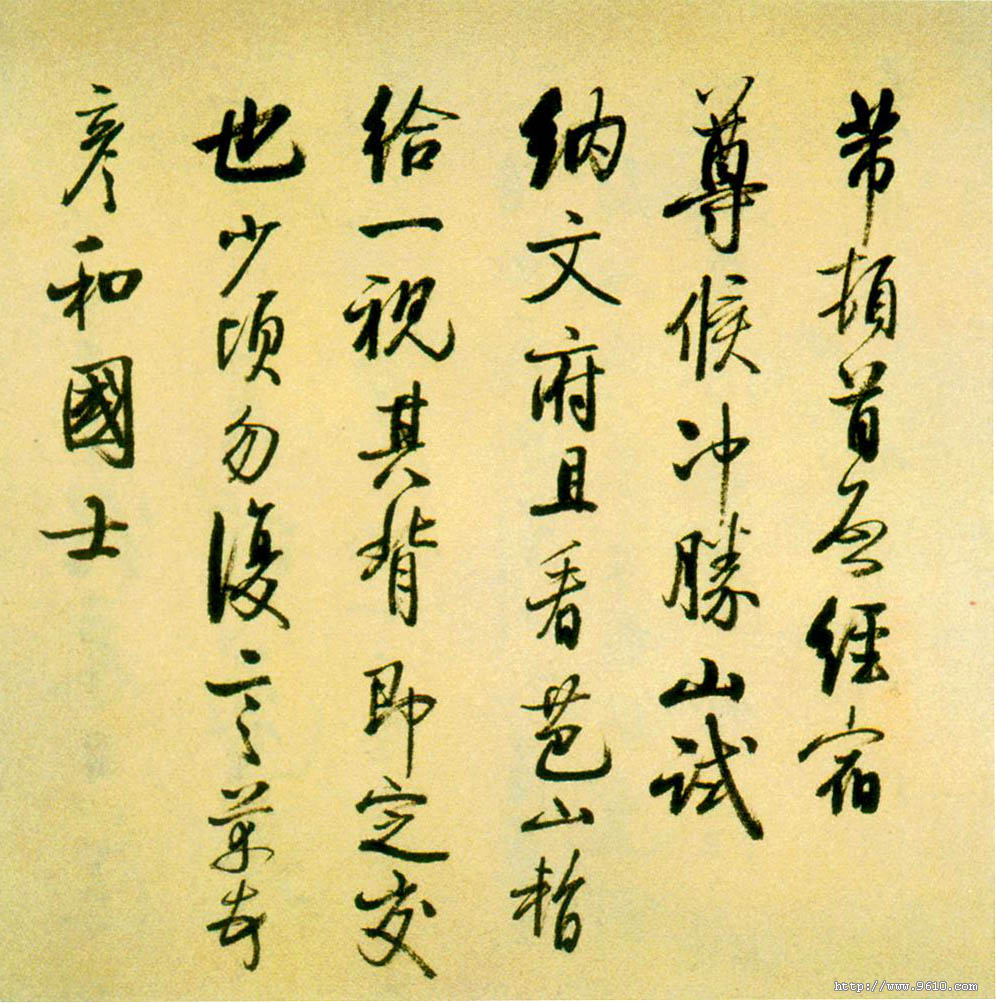 芾頓首启經宿
尊候冲勝山試
納文府且看芭山暫
給一視其背即定交
也少頃勿復言芾頓首
彦和國士
http://www.9610.com